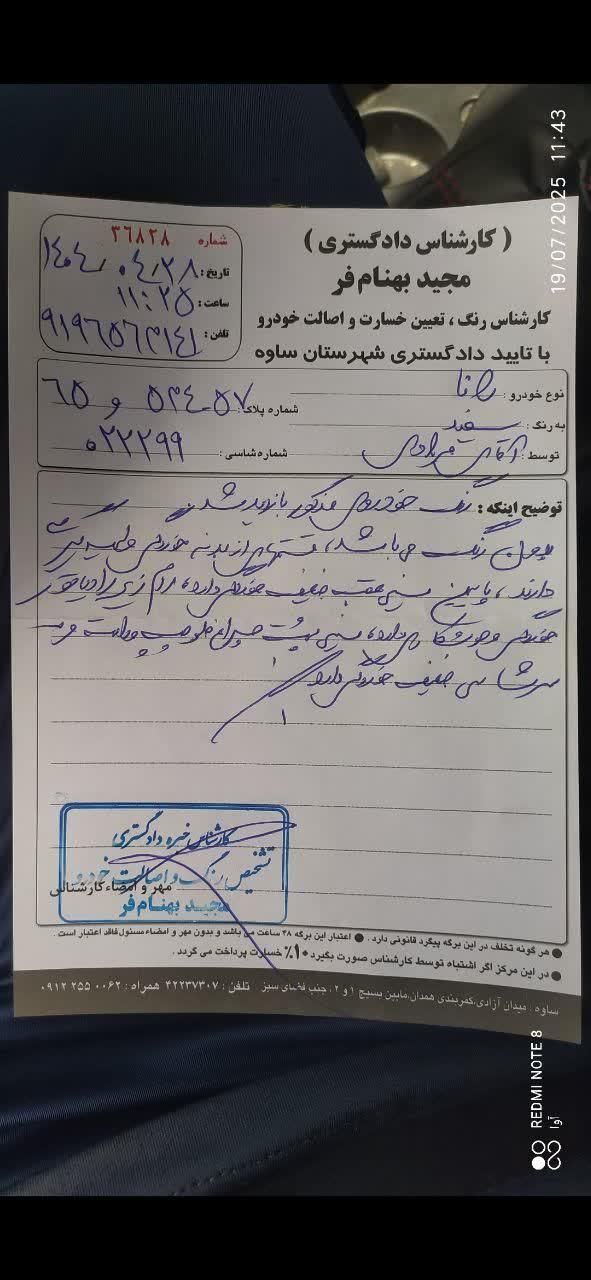 19/07/2025 11:43
( کارشناس دادگستری )
مجید بهنام فر
کارشناس رنگ ، تعیین خسارت و اصالت خودرو
با تایید دادگستری شهرستان ساوه
شماره ۳۶۸۲۸
تاریخ : ۱۴۰۴/۰۴/۲۸
ساعت : ۱۱:۲۵
تلفن :
نوع خودرو : رانا
شماره پلاک :
به رنگ : سفید
توسط : آقای مرادی
شماره شناسی : ۰۲۲۲۹۹
توضیح اینکه : رنگ خودروی مذکور بازدید شد
بدون رنگ می باشد، قسمتهای از بدنه خوردگی و لیسه گیری
دارند ، پایین سینی عقب خفیف خوردگی دارد، رام زیر رادیاتور
خوردگی و جوشکاری دارد، سینی پشت چراغ جلو چپ و راست
سرشاسی خفیف خوردگی دارد
کارشناس خبره دادگستری
تشخیص رنگ و اصالت خودرو
مجید بهنام فر
مهر و امضاء کارشناس
● هر گونه تخلف در این برگه پیگرد قانونی دارد . ● اعتبار این برگه ۴۸ ساعت می باشد و بدون مهر و امضاء مسئول فاقد اعتبار است .
● در این مرکز اگر اشتباه توسط کارشناس صورت بگیرد ۱۰٪ خسارت پرداخت می گردد .
ساوه : میدان آزادی،کمربندی همدان،مابین بسیج ۱ و ۲ ، جنب فضای سبز تلفن : ۴۲۲۳۷۳۰۷ همراه : ۰۹۱۲ ۲۵۵ ۰۰۶۲
REDMI NOTE 8
آوا